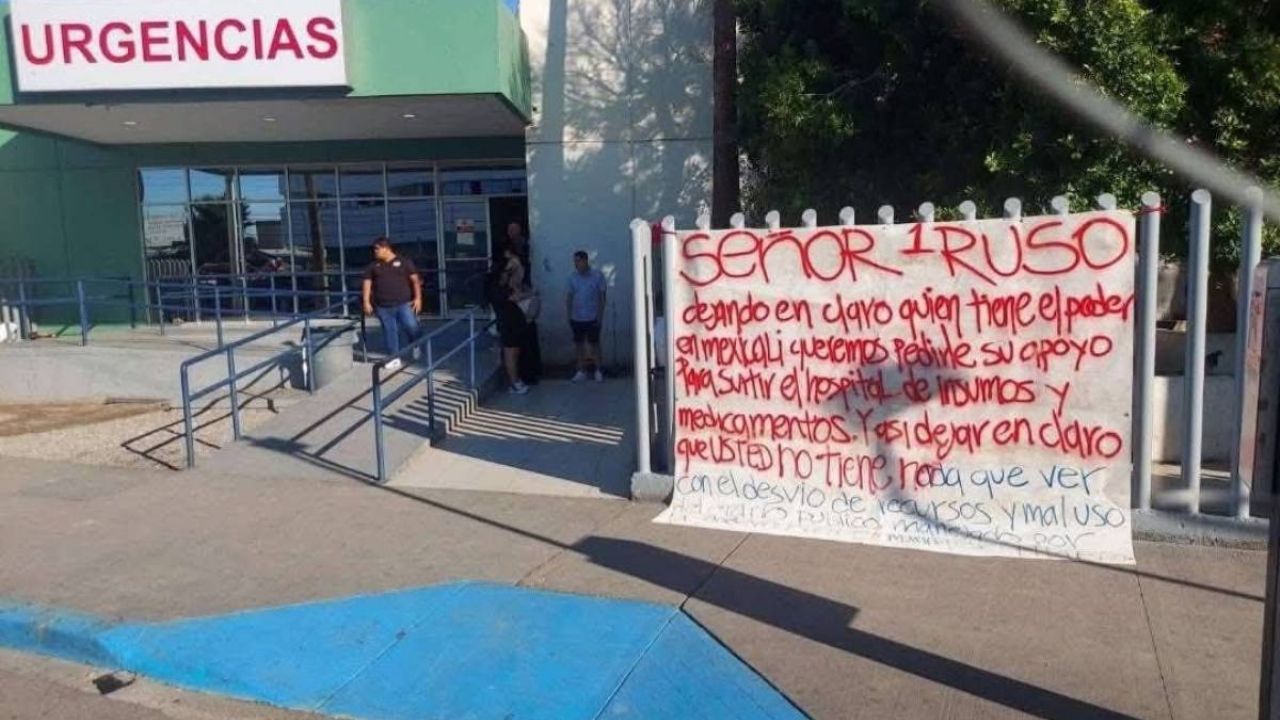 URGENCIAS
SEÑOR 1 RUSO
dejando en claro quien tiene el poder
en mexicali queremos pedirle su apoyo
Para surtir el hospital de insumos y
medicamentos. Y asi dejar en claro
que USTED no tiene nada que ver
con el desvio de recursos y mal uso
público manejado por